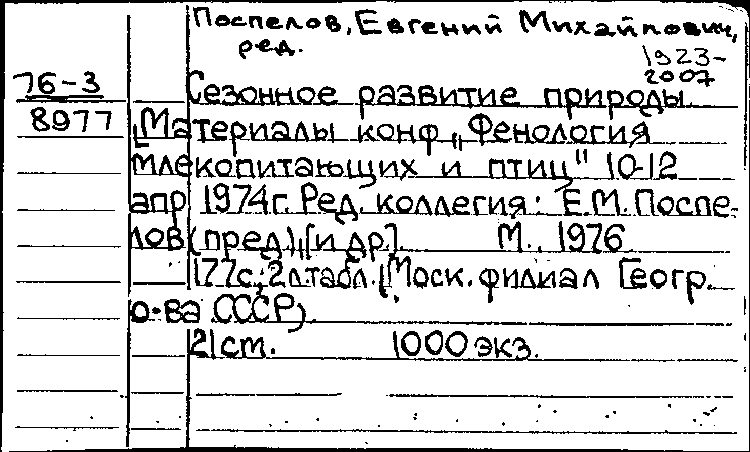 Поспелов, Евгений Михайлович,
ред.
1923-
2007
76-3
Сезонное развитие природы.
8977
[Материалы конф „Фенология
млекопитающих и птиц" 10-12
апр 1974г. Ред. коллегия: Е.М. Поспе-
лов (пред), [и др.]. М., 1976
177с.; 2 л.табл. (Моск. филиал Геогр.
о-ва СССР).
21см. 1000 экз.